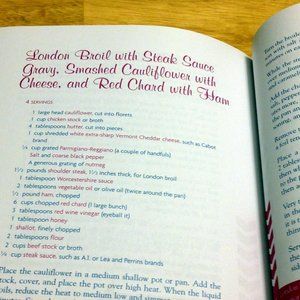 London Broil with Steak Sauce
Gravy, Smashed Cauliflower with
Cheese, and Red Chard with Ham
4 SERVINGS
1 large head cauliflower, cut into florets
1 cup chicken stock or broth
4 tablespoons butter, cut into pieces
1 cup shredded white extra-sharp Vermont Cheddar cheese, such as Cabot
brand
¼ cup grated Parmigiano-Reggiano (a couple of handfuls)
Salt and coarse black pepper
A generous grating of nutmeg
1½ pounds shoulder steak, 1½ inches thick, for London broil
1 tablespoon Worcestershire sauce
2 tablespoons vegetable oil or olive oil (twice around the pan)
pound ham, chopped
6 cups chopped red chard (1 large bunch)
3 tablespoons red wine vinegar (eyeball it)
1 tablespoon honey
1 shallot, finely chopped
2 tablespoons flour
2 cups beef stock or broth
¼ cup steak sauce, such as A.I. or Lea and Perrins brands
Place the cauliflower in a medium shallow pot or pan. Add the
stock, cover, and place the pot over high heat. When the liquid
boils, reduce the heat to medium low and simmer
Turn the
with salt
While the